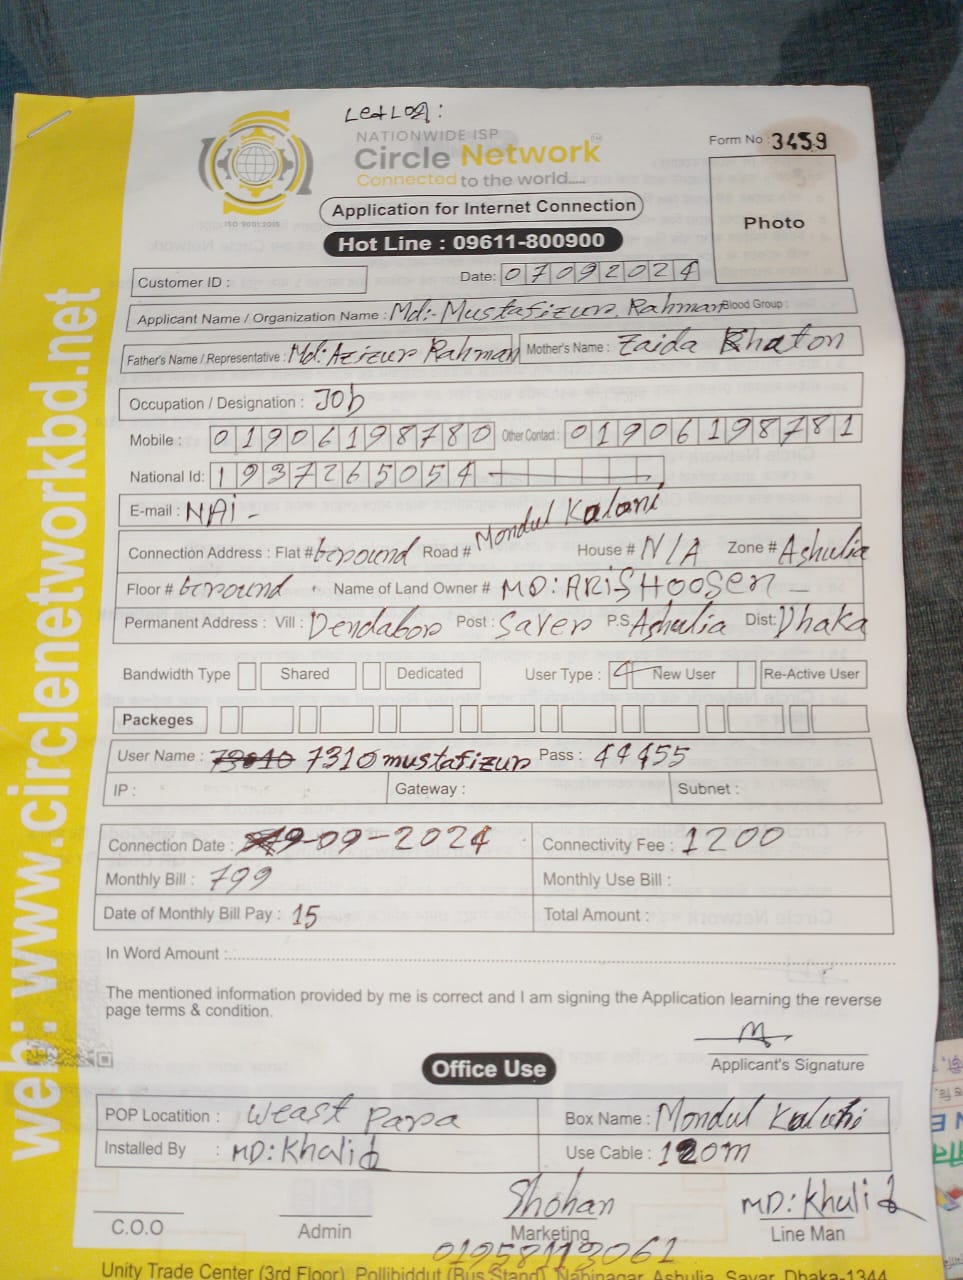 LedLog:
NATIONWIDE ISP
Circle Network
Connected to the world.....
ISO 9001:2015
Form No : 3459
Photo
Application for Internet Connection
Hot Line : 09611-800900
Customer ID :
Date: 07092024
Applicant Name / Organization Name : Md:- Mustafizur Rahman Blood Group :
Father's Name / Representative : Md: Azizur Rahman Mother's Name : Zaida Khaton
Occupation / Designation : Job
Mobile : 01906198780 Other Contact : 01906198781
National Id: 1937265054
E-mail : NAi -
Connection Address : Flat # Ground Road # Mondul Kalani House # N/A Zone # Ashulia
Floor # Ground Name of Land Owner # MD: ARiS HOOSen
Permanent Address : Vill : Dendabor Post : Saver P.S. Ashulia Dist: Dhaka
Bandwidth Type Shared Dedicated User Type : New User Re-Active User
Packeges
User Name : 7310mustafizur Pass : 44455
IP : Gateway : Subnet :
Connection Date : 9-09-2024 Connectivity Fee : 1200
Monthly Bill : 799 Monthly Use Bill :
Date of Monthly Bill Pay : 15 Total Amount :
In Word Amount :
The mentioned information provided by me is correct and I am signing the Application learning the reverse
page terms & condition.
Applicant's Signature
Office Use
POP Locatition : Weast Papa Box Name : Mondul
Installed By : MD: Khalid Use Cable : 120m
Shohan MD: Khalid
C.O.O Admin Marketing Line Man
01958113061
Unity Trade Center (3rd Floor), Pollibiddut (Bus Stand), Nabinagar, Ashulia, Savar, Dhaka-1344
web: www.circlenetworkbd.net